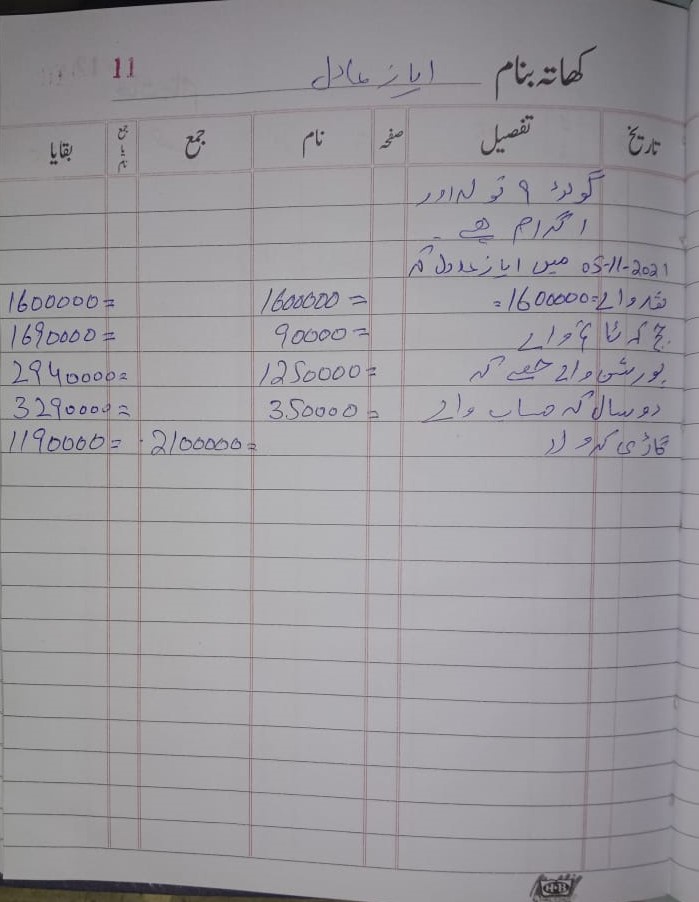 کھاتہ بنام ایاز عادل 11
تاریخ تفصیل صفحہ نام جمع جمع یا نام بقایا
گولڈ 9 تولہ اور
1 گرام ہے۔
05-11-2021 میں ایاز عادل کہ
نقد والے =1600000 1600000= 1600000=
والے 90000= 1690000=
پورشن والے حصے کہ 1250000= 2940000=
دو سال کہ حساب والے 350000= 3290000=
گاڑی کرولا 2100000= 1190000=
HB